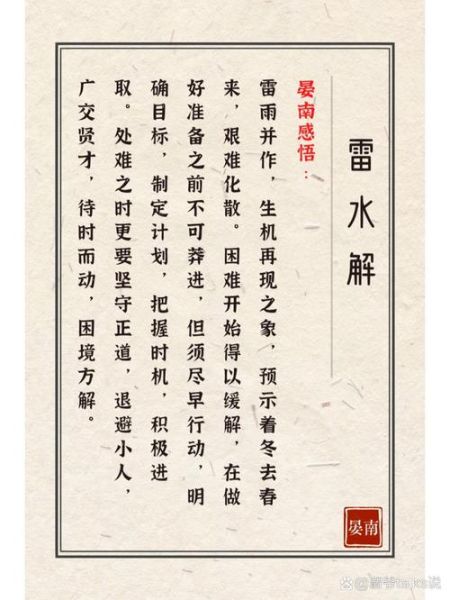 雷水解
晏南感悟：
雷雨并作，生机再现之象，预示着冬去春
来，艰难化散。困难开始得以缓解，在做
好准备之前不可莽进，但须尽早行动，明
确目标，制定计划，把握时机，积极进
取。处难之时更要坚守正道，退避小人，
广交贤才，待时而动，困境方解。
晏南